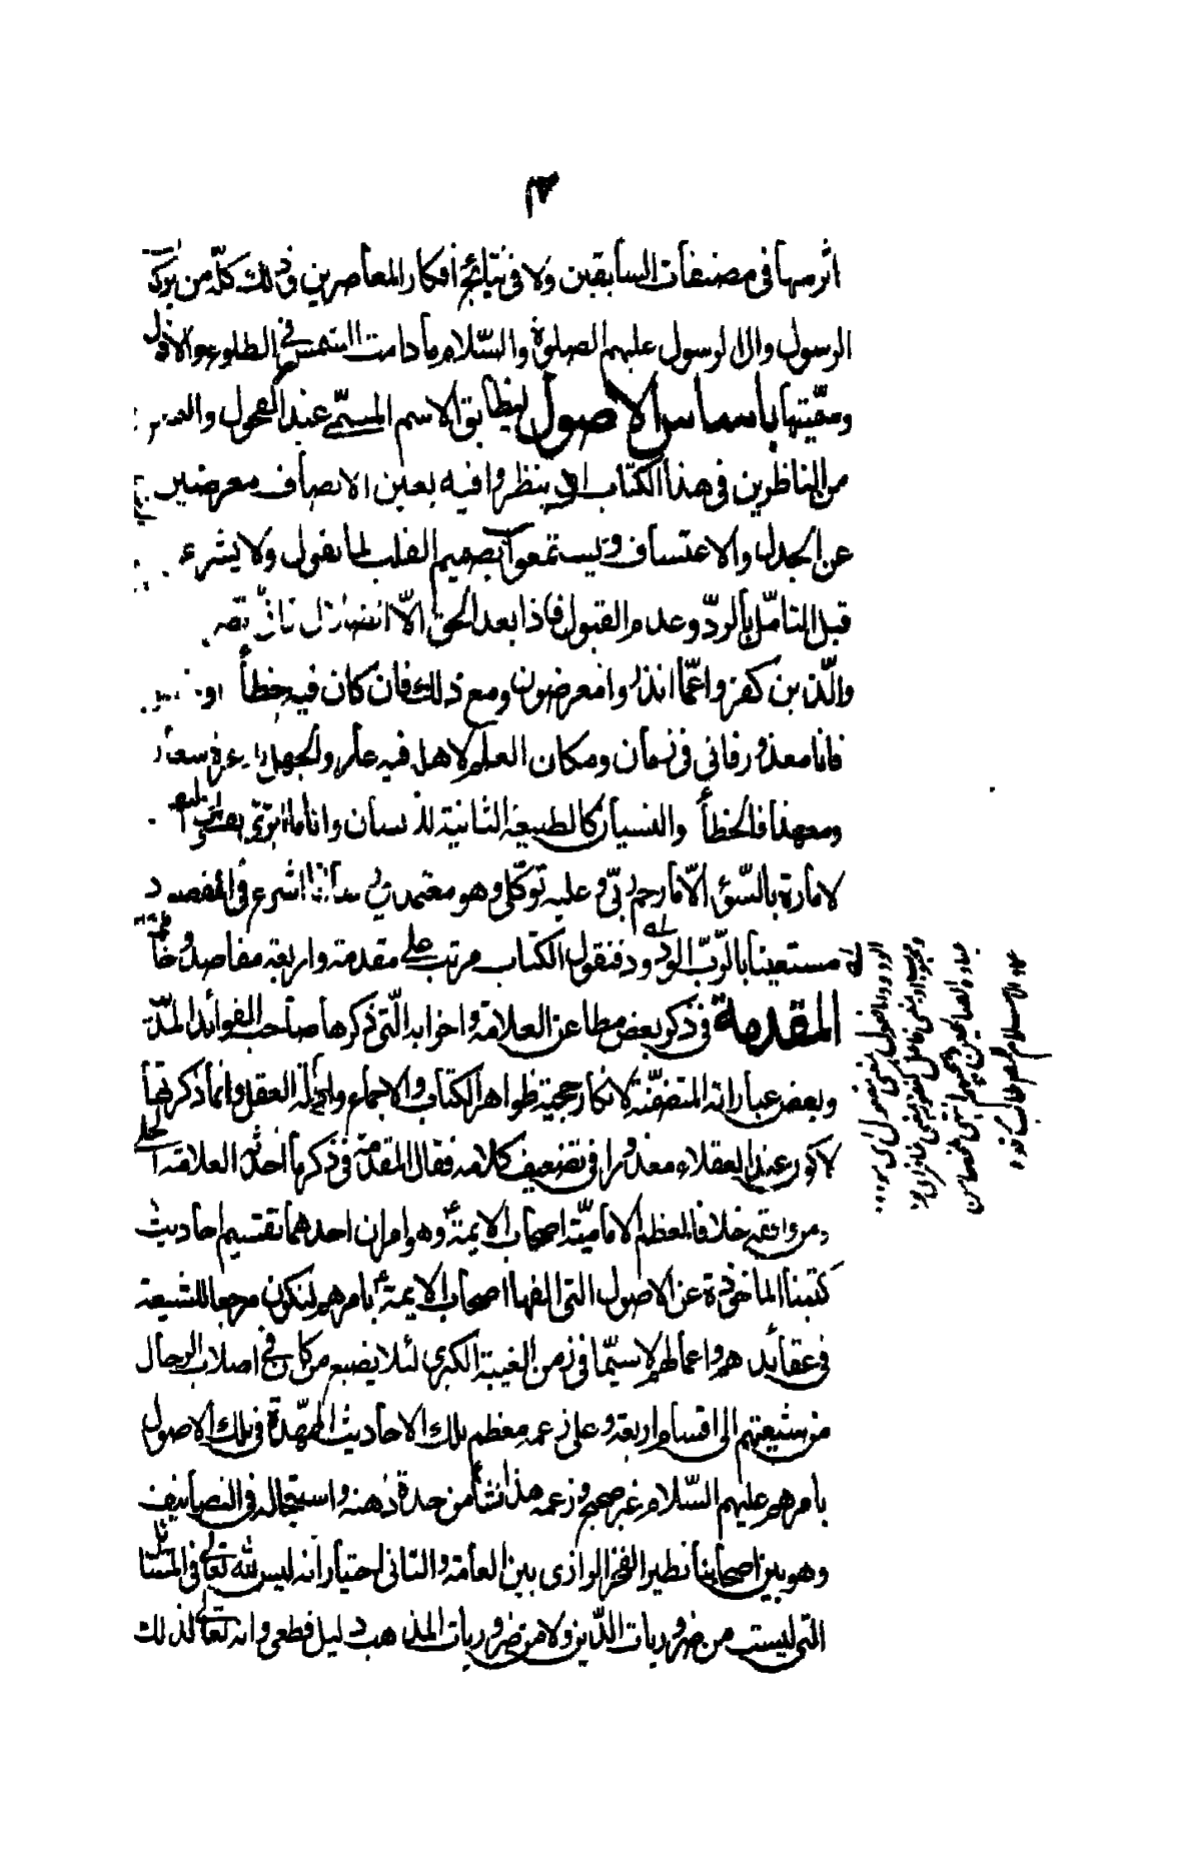 ٣
اثر منها فى مصنفات السابقين ولا فى نتايج افكار المعاصرين وذلك كلّه من بركة
الرسول وال الرسول عليهم الصلوة والسّلام ما دامت الشمس فى الطلوع والافول
وسمّيتها باساس الاصول ليطابق الاسم المسمّى عند الفحول
من الناظرين فى هذا الكتاب ان ينظروا فيه بعين الانصاف معرضين
عن الجدل والاعتساف ويستمعوا بصميم القلب لما نقول ولا يشرع
قبل التامّل بالردّ وعدم القبول فماذا بعد الحق الّا
والّذين كفروا عمّا انذروا معرضون ومع ذلك فان كان فيه خطأ او
فانا معذور فانى فى زمان ومكان العلم لاهل فيه عار والجهل
ومعهذا فالخطأ والنسيان كالطبيعة الثانية للانسان وانا ما ابرّئ نفسى
لامارة بالسّوء الّا ما رحم ربّى وعليه توكّلى وهو معتمدى اشرع فى المقصود
مستعينا بالرّبّ الودود فنقول الكتاب مرتب على مقدمة واربعة مقاصد وخاتمة
المقدمة فى ذكر بعض مطاعن العلامة واخرابه الّتى ذكرها صاحب الفوائد المدنّية
وبعض عباراته المتضمّنة لانكار حجية ظواهر الكتاب والاجماع وادلّة العقل وانما ذكرتها
لاكون عند العقلاء معذورا فى تضعيف كلامه فقال المقدمة فى ذكر ما احدثه العلامة الحلى
ومن وافقه خلافا لمعظم الامامّية اصحاب الايمة ع وهو امران احدهما تقسيم احاديث
كتبنا الماخوذة عن الاصول التى الفها اصحاب الايمة ع بامرهم لتكون مرجعا للشيعة
فى عقائدهم واعمالهم لا سيّما فى زمن الغيبة الكبرى لئلا يضيع من كان فى اصلاب الرجال
من شيعتهم الى اقسام اربعة وعلى زعمه معظم تلك الاحاديث الممهّدة فى تلك الاصول
بامرهم عليهم السّلام غير صحيح وزعمه هذا نشأ من حدة ذهنه واستعجاله فى التصانيف
وهو بين اصحابنا نظير الفخر الرازى بين العامة والثانى اختيار انه ليس لله تعالى فى المسائل
التى ليست من ضروريات الدّين ولا من ضروريات المذهب دليل قطعى وانه تعالى لذلك